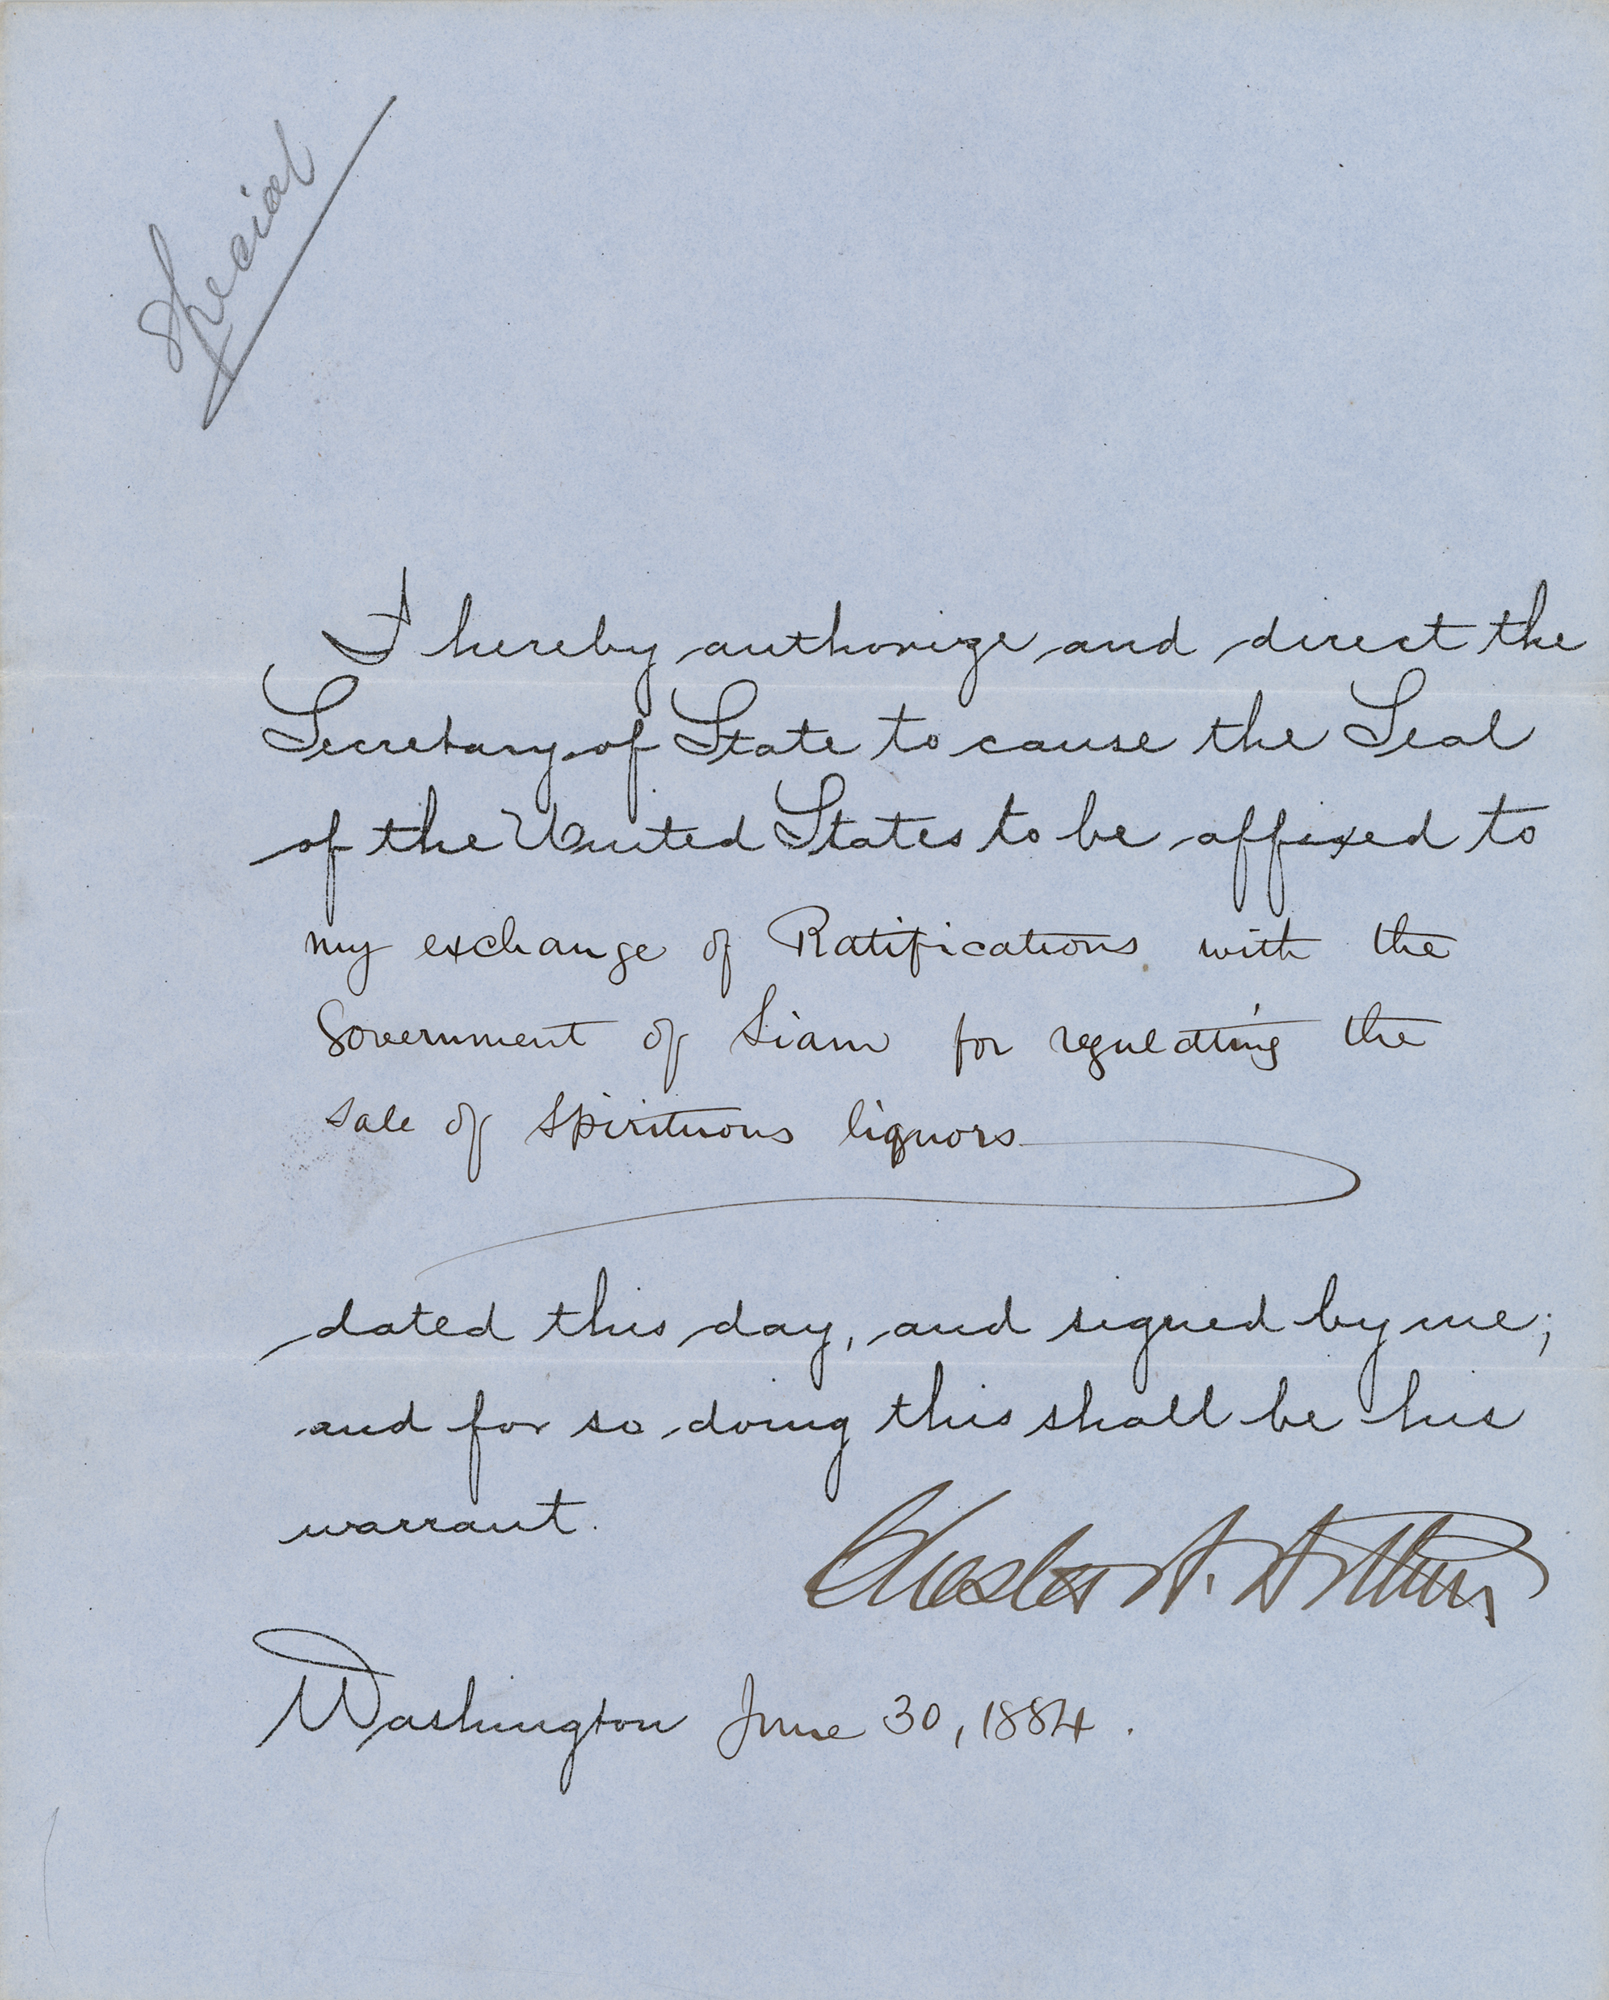 Special
I hereby authorize and direct the
Secretary of State to cause the Seal
of the United States to be affixed to
my exchange of Ratifications with the
Government of Siam for regulating the
sale of spirituous liquors
dated this day, and signed by me;
and for so doing this shall be his
warrant.
Chester A. Arthur
Washington June 30, 1884.